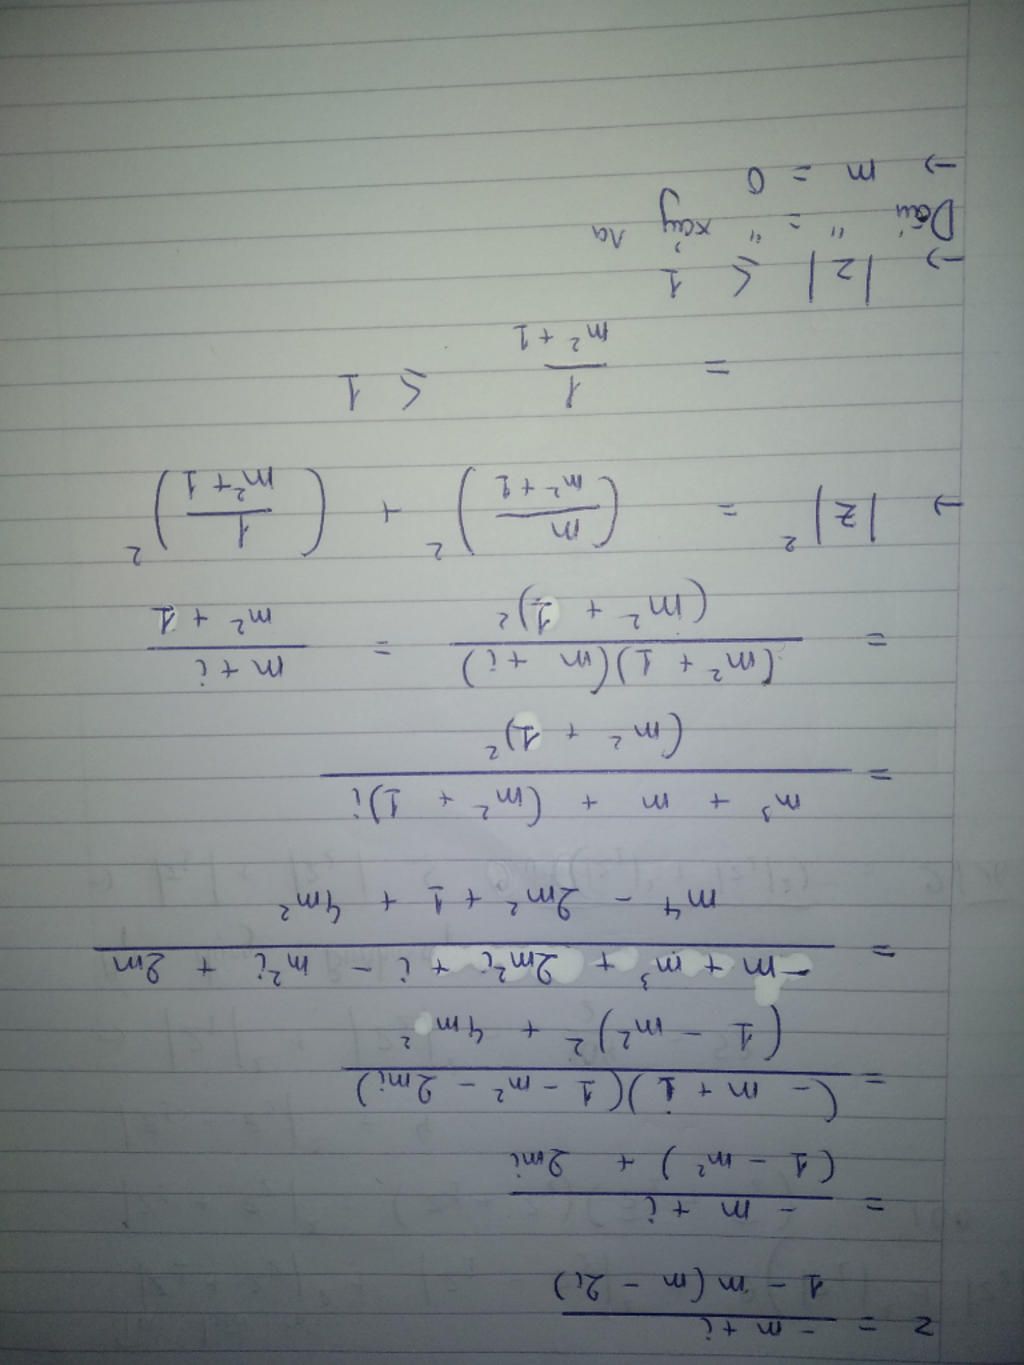 z = (-m + i) / (1 - m(m - 2i))
= (-m + i) / ((1 - m²) + 2mi)
= (-m + i)(1 - m² - 2mi) / ((1 - m²)² + 4m²)
= (-m + m³ + 2m²i + i - m²i + 2m) / (m⁴ - 2m² + 1 + 4m²)
= (m³ + m + (m² + 1)i) / (m² + 1)²
= (m² + 1)(m + i) / (m² + 1)² = (m + i) / (m² + 1)
→ |z|² = (m / (m² + 1))² + (1 / (m² + 1))²
= 1 / (m² + 1) ≤ 1
→ |z| ≤ 1
Dấu "=" xảy ra
→ m = 0